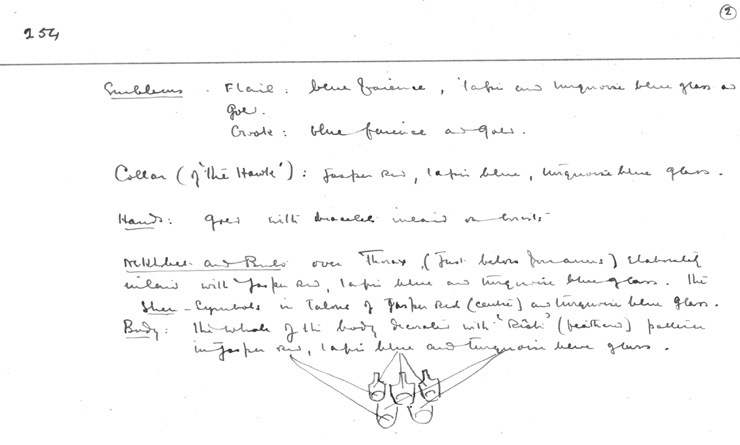 2
254
Emblems. Flail: blue faience, lapis and turquoise blue glass and
gold.
Crook: blue faience and gold.
Collar (of 'the Hawk'): Jasper red, lapis blue, turquoise blue glass.
Hands: gold with bracelets inlaid on wrists
Nekhbet and Buto over Thorax, (Just below forearms) Elaborately
inlaid with Jasper red, lapis blue and turquoise blue glass. The
Shen-Symbols in Talons of Jasper Red (centre) and turquoise blue glass.
Body: The whole of the body decorated with 'Rishi' (feathered) pattern
in Jasper red, lapis blue and turquoise blue glass.